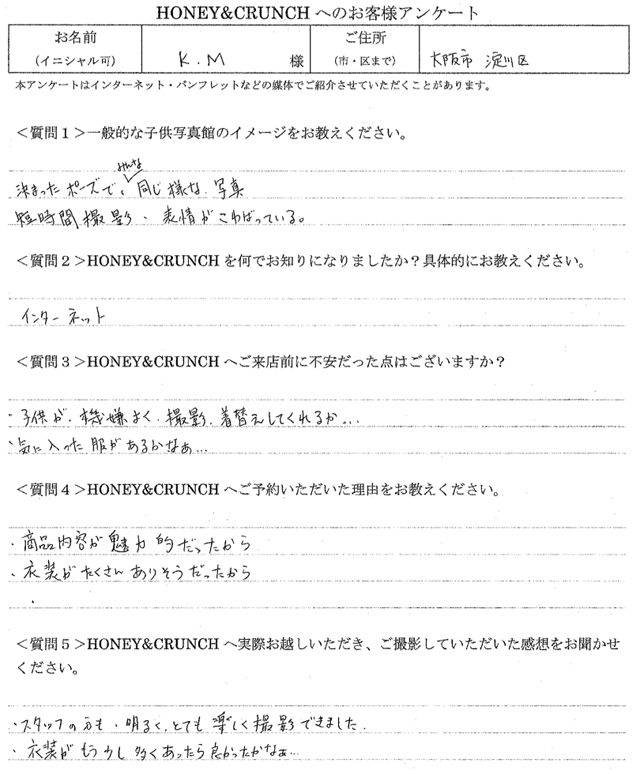 HONEY&CRUNCH へのお客様アンケート
お名前
(イニシャル可)
K.M 様
ご住所
(市・区まで)
大阪市 淀川区
本アンケートはインターネット・パンフレットなどの媒体でご紹介させていただくことがあります。
＜質問１＞一般的な子供写真館のイメージをお教えください。
みんな
決まったポーズで、同じ様な写真
短時間撮影、表情がこわばっている。
＜質問２＞HONEY&CRUNCH を何でお知りになりましたか？具体的にお教えください。
インターネット
＜質問３＞HONEY&CRUNCH へご来店前に不安だった点はございますか？
・子供が、機嫌よく、撮影、着替えしてくれるか…
・気に入った服があるかなぁ…
＜質問４＞HONEY&CRUNCH へご予約いただいた理由をお教えください。
・商品内容が魅力的だったから
・衣装がたくさんありそうだったから
・
＜質問５＞HONEY&CRUNCH へ実際お越しいただき、ご撮影していただいた感想をお聞かせ
ください。
・スタッフの方も、明るく、とても楽しく撮影できました。
・衣装がもう少し多くあったら良かったかなぁ…